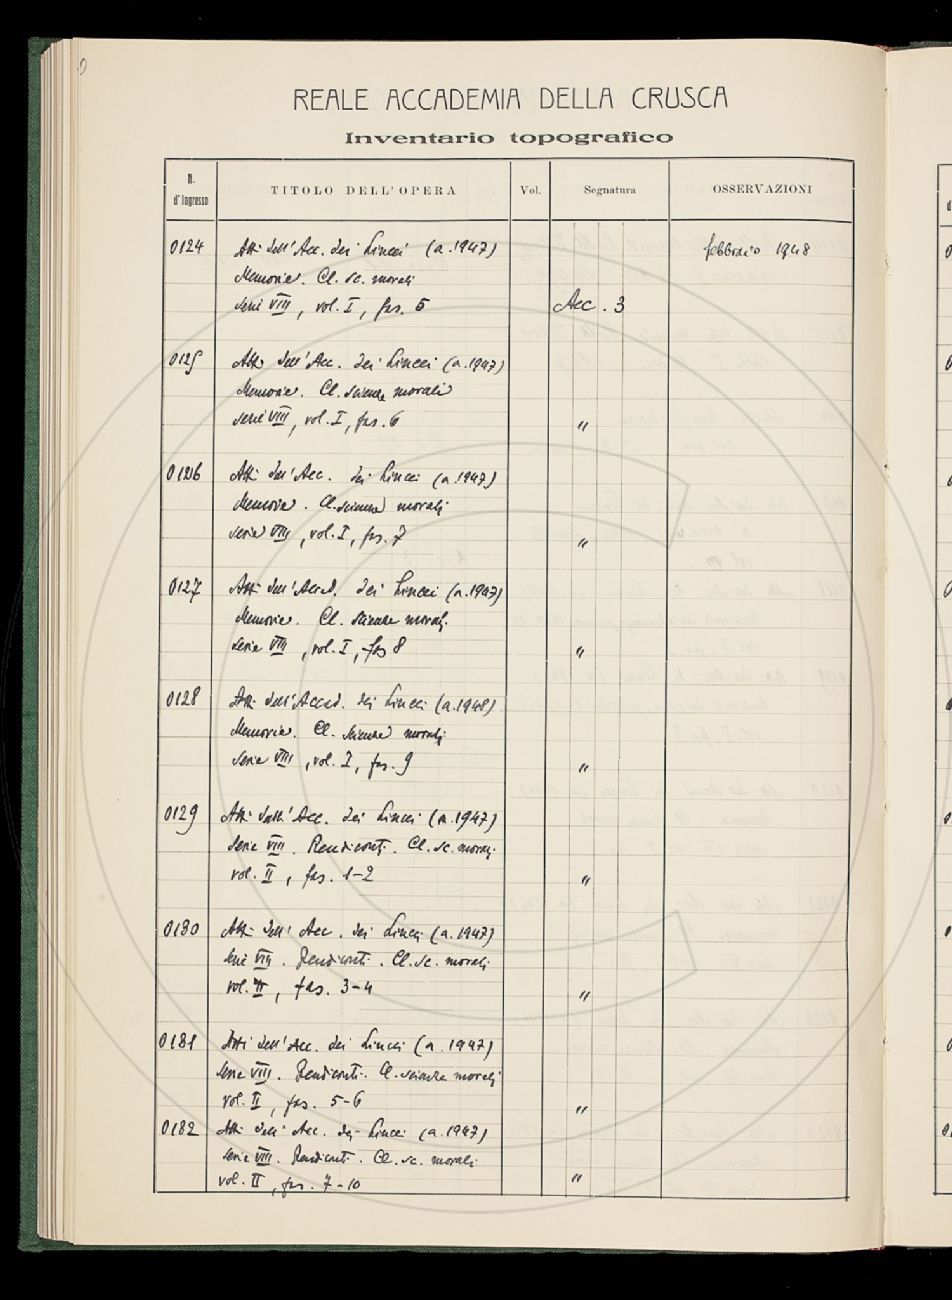 REALE ACCADEMIA DELLA CRUSCA
Inventario topografico
N. d'Ingresso TITOLO DELL'OPERA Vol. Segnatura OSSERVAZIONI
0124 Atti dell'Acc. dei Lincei (a. 1947) febbraio 1948
Memorie. Cl. sc. morali
serie VIII, vol. I, fas. 5 Acc. 3
0125 Atti dell'Acc. dei Lincei (a. 1947)
Memorie. Cl. scienze morali
serie VIII, vol. I, fas. 6 "
0126 Atti dell'Acc. dei Lincei (a. 1947)
Memorie. Cl. scienze morali
serie VIII, vol. I, fas. 7 "
0127 Atti dell'Accad. dei Lincei (a. 1947)
Memorie. Cl. scienze morali
serie VIII, vol. I, fas 8 "
0128 Atti dell'Accad. dei Lincei (a. 1948)
Memorie. Cl. scienze morali
serie VIII, vol. I, fas. 9 "
0129 Atti dell'Acc. dei Lincei (a. 1947)
serie VIII. Rendiconti. Cl. sc. morali
vol. II, fas. 1-2 "
0130 Atti dell'Acc. dei Lincei (a. 1947)
serie VIII. Rendiconti. Cl. sc. morali
vol. II, fas. 3-4 "
0131 Atti dell'Acc. dei Lincei (a. 1947)
serie VIII. Rendiconti. Cl. scienze morali
vol. II, fas. 5-6 "
0132 Atti dell'Acc. dei Lincei (a. 1947)
serie VIII. Rendiconti. Cl. sc. morali
vol. II, fas. 7-10 "